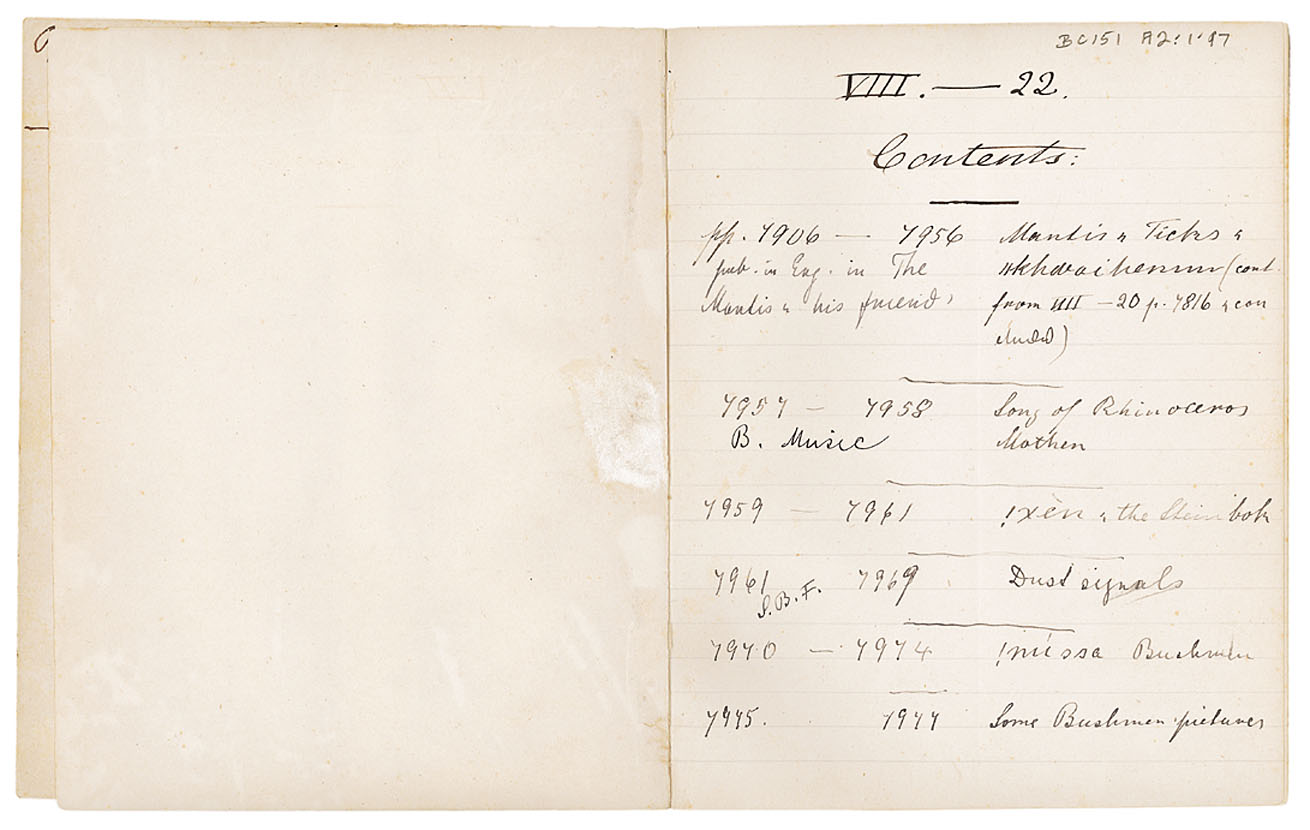 BC151 A2:1:97
VIII. — 22.
Contents:
pp. 7906 — 7956 Mantis & Ticks &
pub. in Eng. in The
Mantis & his friend' from VIII — 20 p. 7816 & con
cluded)
7957 — 7958 Song of Rhinoceros
B. Music Mother
7959 — 7961 !xèn & the Steinbok
7961 7969 Dust signals
S.B.F.
7970 — 7974 !nússa Bushmen
7975. 7977 Some Bushmen pictures